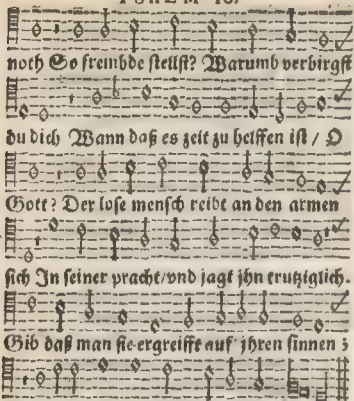 PSALM 10.
noch So frembde stellst? Warumb verbirgst
du dich Wann daß es zeit zu helffen ist / O
Gott? Der lose mensch reibt an den armen
sich In seiner pracht/vnd jagt jhn trutziglich.
Gib daß man sie ergreifft auf jhren sinnen ;